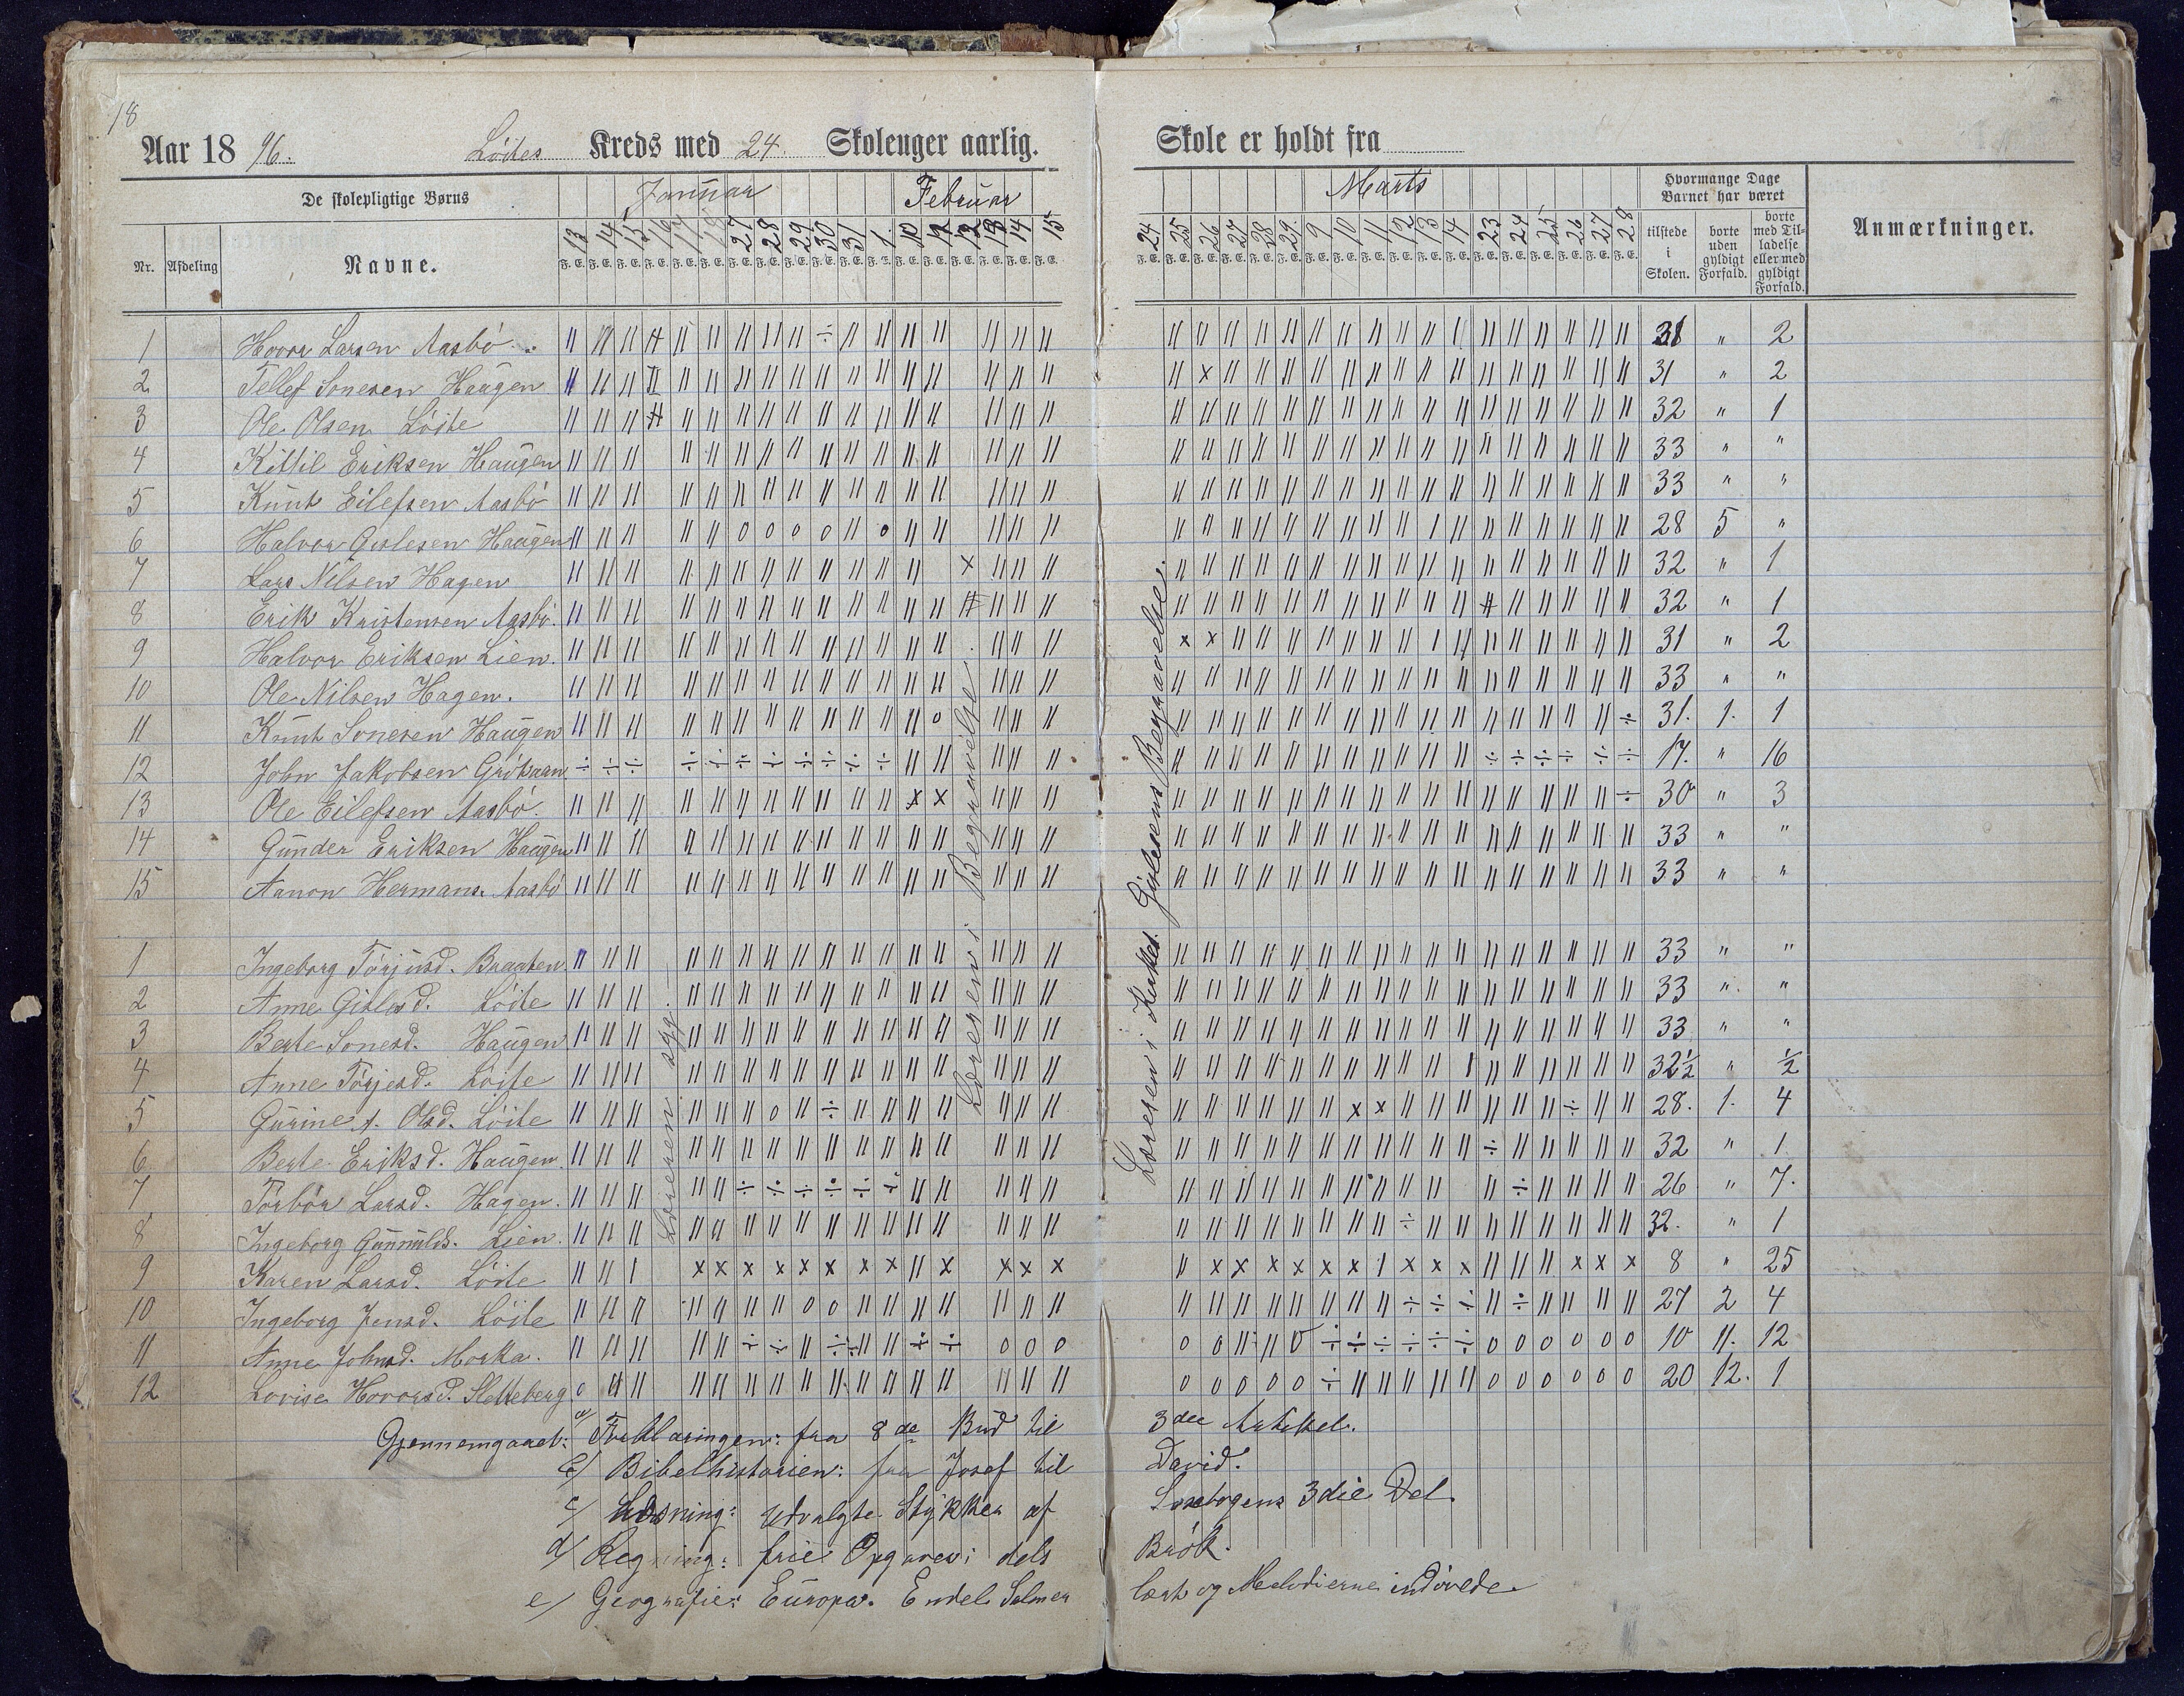 18
Aar 18 96. Löites Kreds med 24 Skoleuger aarlig. Skole er holdt fra
De skolepligtige Børns Januar Februar Marts Hvormange Dage Barnet har været Anmærkninger.
Nr. Afdeling Navne. tilstede i Skolen. borte uden gyldigt Forfald. borte med Tilladelse eller med gyldigt Forfald.
13 14 15 16 17 18 27 28 29 30 31 1 10 12 13 14 15 24 25 26 27 28 29 9 10 11 12 13 14 23 24 25 26 27 28
1 Hovor Larsen Aasbö 31 " 2
2 Tellef Sonesen Haugen 31 " 2
3 Ole Olsen Löite 32 " 1
4 Kittil Eriksen Haugen 33 " "
5 Knut Eilefsen Aasbö 33 " "
6 Halvor Gislesen Haugen 28 5 "
7 Lars Nilsen Hagen 32 " 1
8 Erik Kristensen Aasbö. 32 " 1
9 Halvor Eriksen Lien. 31 " 2
10 Ole Nilsen Hagen. 33 " "
11 Knut Sonesen Haugen 31. 1. 1
12 John Jakobsen 17. " 16
13 Ole Eilefsen Aasbö. 30 " 3
14 Gunder Eriksen Haugen 33 " "
15 Aanon Hermans. Aasbö 33 " "
1 Ingeborg Törjusd. Braaten. 33 " "
2 Anne Gislesd. Löite 33 " "
3 Berte Sonesd. Haugen 33 " "
4 Anne Törjesd. Löite 32½ " ½
5 Gurine A. Olsd. Löite 28. 1. 4
6 Berte Eriksd. Haugen. 32 " 1
7 Törbör Larsd. Hagen. 26 " 7.
8 Ingeborg Gunnulds. Lien. 32. " 1
9 Karen Larsd. Löite 8 " 25
10 Ingeborg Jensd. Löite 27 2 4
11 Anne Johnsd. Morka. 10 11. 12
12 Lovise Hovorsd. Sletteberg 20 12. 1
Læreren syg.
Læreren i Begravelse
Læreren i Kirkel. Gislesens Begravelse.
Gjennemgaaet: a/ Forklaringen: fra 8de Bud til 3die Artikel.
b/ Bibelhistorien: fra Josef til David.
c/ Læsning: Udvalgte Stykker af Læsebogens 3die Del
d/ Regning: frie Opgaver; dels Brök.
e/ Geografie: Europa. Endel Salmer lært og Melodierne indövede